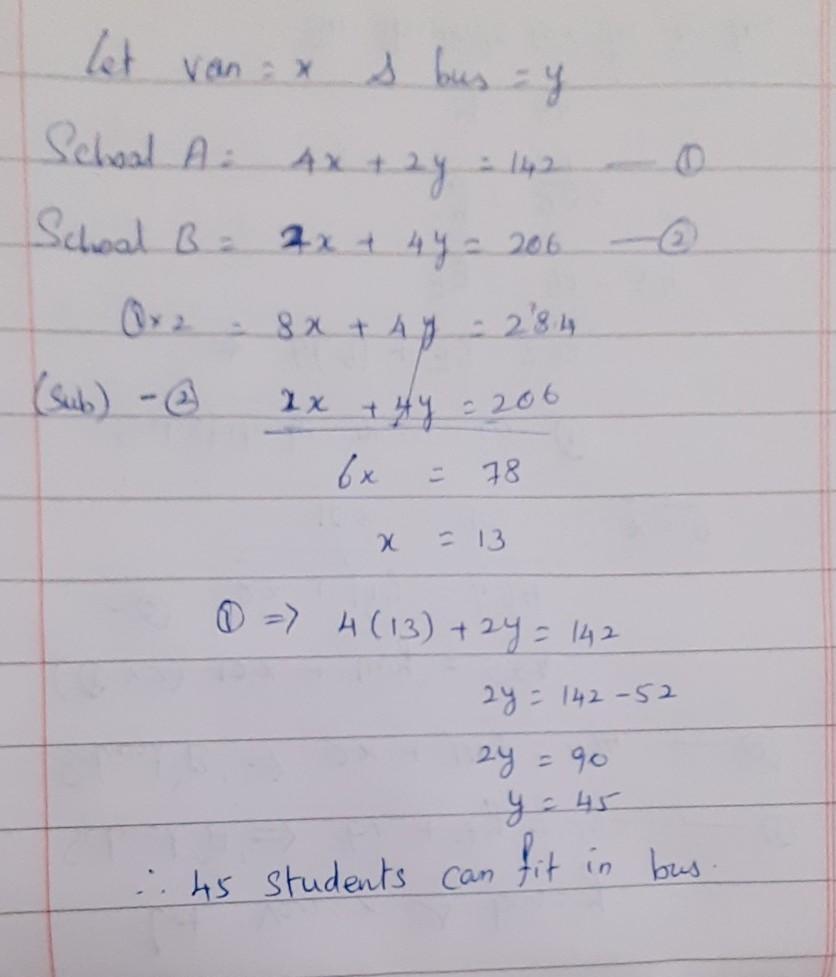 Let van = x & bus = y
School A = 4x + 2y = 142 — ①
School B = 2x + 4y = 206 — ②
①×2 = 8x + 4y = 284
(Sub) - ② 2x + 4y = 206
6x = 78
x = 13
① => 4(13) + 2y = 142
2y = 142 - 52
2y = 90
y = 45
∴ 45 students can fit in bus.